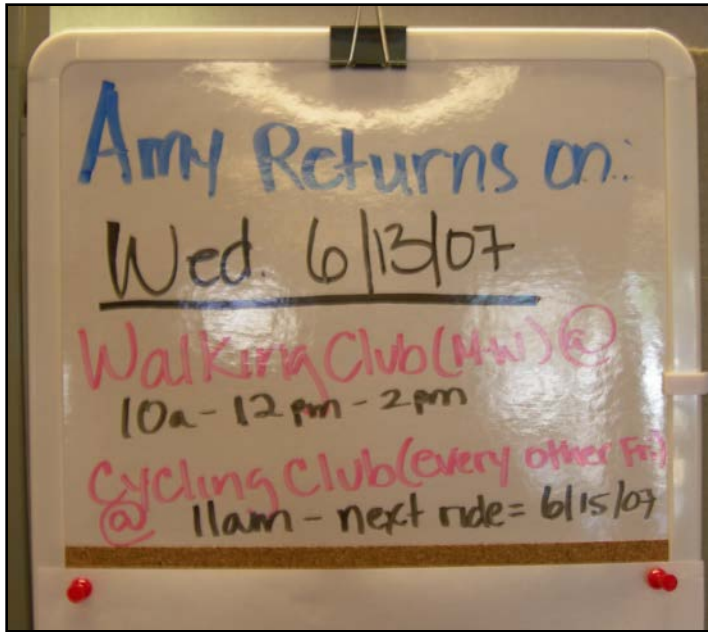 Amy Returns on:
Wed. 6/13/07
Walking Club (M-W) @
10a - 12pm - 2pm
Cycling Club (every other Fri.)
@ 11am - next ride = 6/15/07